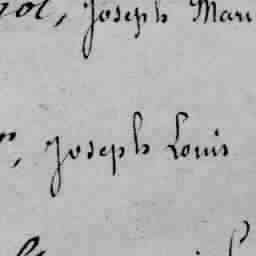 Joseph Mari
Joseph Louis